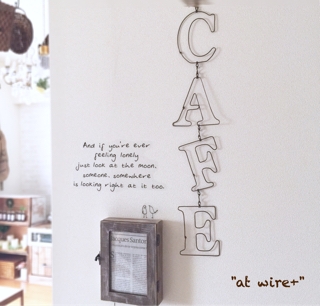 CAFE
And if you're ever
feeling lonely
just look at the moon.
someone, somewhere
is looking right at it too.
Jacques Santini
"at wire+"